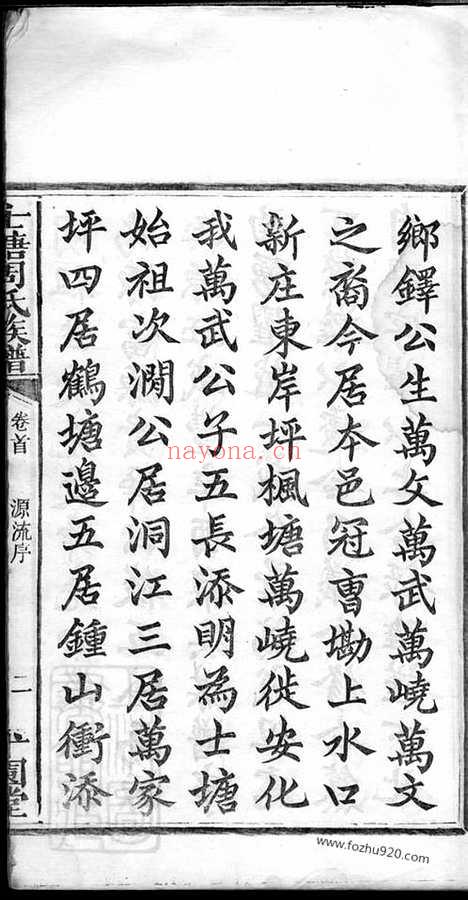 鄉鐸公生萬文萬武萬嶢萬文
之裔今居本邑冠曺勘上水口
新庄東岸坪楓塘萬嶢徙安化
我萬武公子五長添明為士塘
始祖次澗公居洞江三居萬家
坪四居鶴塘邊五居鍾山衝添
士塘周氏族譜
卷首
源流序
二
nayona.cn
www.fozhu920.com